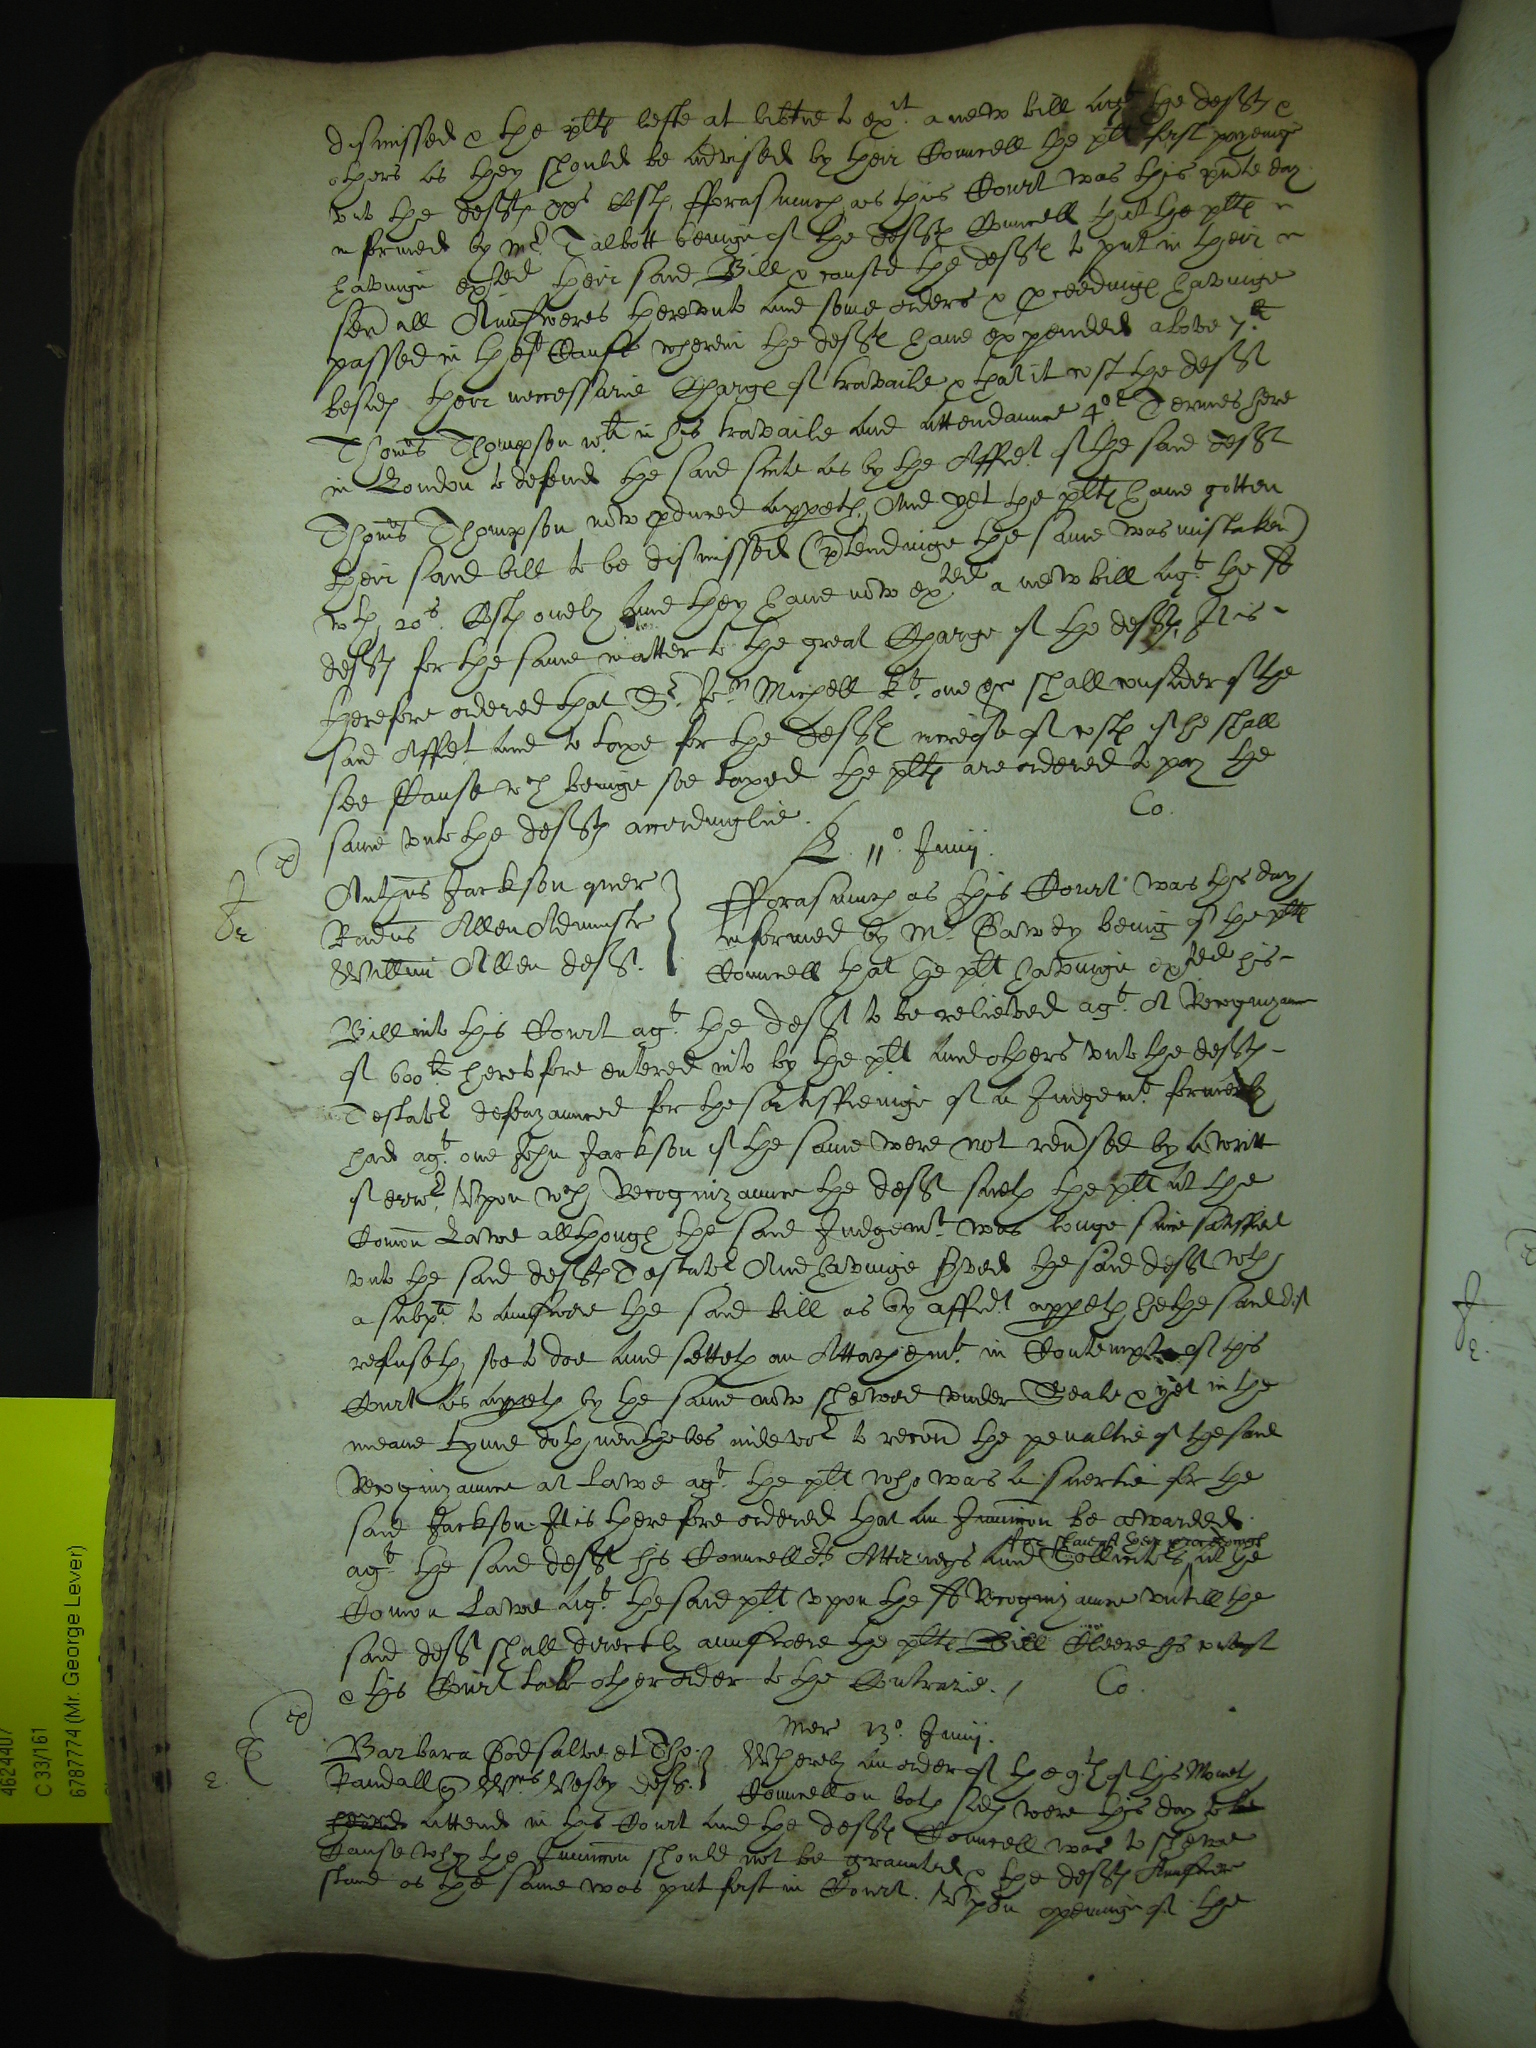 dismissed & the plts lefte at lib'tie to ex'it a new bill ag't the defts &
others as they should be advised by their Councell the plt first payenge
vnto the defts Costs, fforasmuch as this Court was this p'nte day
informed by Mr Talbott beinge of the defts Councell that the plts
havinge ex'ted their said Bill & caused the defts to put in their
seu'all Aunsweres therevnto and some orders & p'ceedings havinge
passed in the Cause wherein the defts haue expended aboue 7li
besides their necessarie Charges of travaile & that it cost the deft
Thom's Thompson in his travaile and attendaunce 4or Termes here
in London to defend the said suite as by the Affid't of the said deft
Thom's Thompson now p'duced appeth, And yet the plts haue gotten
their said bill to be dismissed (p'tendinge the same was mistaken)
wth 20s Costs onely And they haue now ex'ted a new bill ag't the
defts for the same matter to the great Charge of the defts, It is
therefore ordered that Sr Jon Michell kt. one &c shall consider of the
said Affid't and to taxe for the defts increase of costs if he shall
see Cause wch beinge soe taxed the plts are ordered to pay the
same vnto the defts accordinglie. Co.
11o Junij.
Anth'us Jackson quer
Rad'us Allen Administr
Will'mi Allen deft.
fforasmuch as this Court was this day
informed by Mr Gawdy being of the plts
Councell that the plt havinge ex'ted his
Bill into this Court ag't the deft to be relieved ag't A Recognizaunce
of 600li heretofore entered into by the plt and others vnto the defts
Testator defeazaunced for the satisfieinge of a Judgem't formerly
had ag't one John Jackson if the same were not reu'sed by a writt
of error Vpon wch Recognizaunce the deft sueth the plt at the
Comon Lawe although the said Judgem't was longe since satisfied
vnto the said defts Testator And havinge s'ved the said deft wth
a subp'a to aunswere the said bill as by affid't appeth he the said deft
refuseth soe to doe and setteth an Attachem't in Contempte of this
Court as appeth by the same now shewed vnder Seale & yet in the
meane tyme doth neu'theles indevor to recou' the penaltie of the said
Recognizaunce at Lawe ag't the plt who was a suertie for the
said Jackson It is therefore ordered that an Iniunccon be awarded
ag't the said deft his Councellors Attorneys and Sollicitors at the
Comon Lawe ag't the said plt vpon the Recognizaunce vntill the
said deft shall directly aunswere the plts Bill Cleere his contempt
& this Court take other order to the Contrarie. / Co.
Mer 13o Junij.
Barbara Godsalve et Tho.
Randall q Wm's Vesey deft.
Whereby an order of the 9th of this Moneth
Councell on both sides were this day to
attend in this Court and the defts Councell was to shewe
Cause why the Iniunccon should not be graunted & the defts Aunswere
stand as the same was put first in Court. Vpon openinge of the
4624407
C 33/161
6787774 (Mr. George Lever)